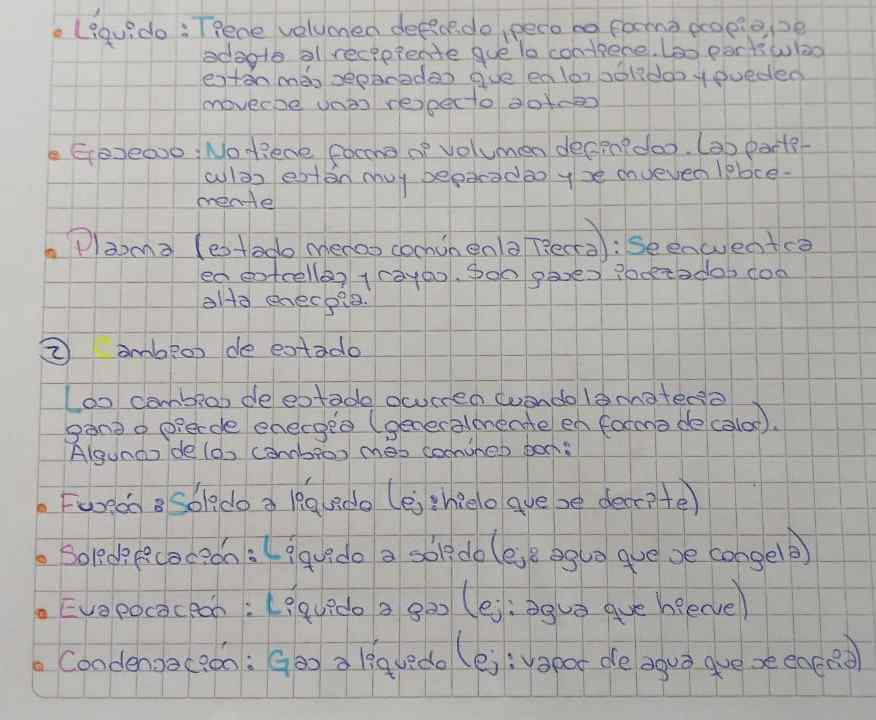 • Líquido : Tiene volumen definido, pero no forma propia, se
adapta al recipiente que lo contiene. Las partículas
están más separadas que en los sólidos y pueden
moverse unas respecto a otras
• Gaseoso : No tiene forma ni volumen definidos. Las partí-
culas están muy separadas y se mueven libre-
mente
• Plasma (estado menos común en la Tierra) : Se encuentra
en estrellas y rayos. Son gases ionizados con
alta energía.
② Cambios de estado
Los cambios de estado ocurren cuando la materia
gana o pierde energía (generalmente en forma de calor).
Algunos de los cambios más comúnes son:
• Fusión : Sólido a líquido (ej: hielo que se derrite)
• Solidificación : Líquido a sólido (ej: agua que se congela)
• Evaporación : Líquido a gas (ej: agua que hierve)
• Condensación : Gas a líquido (ej: vapor de agua que se enfría)